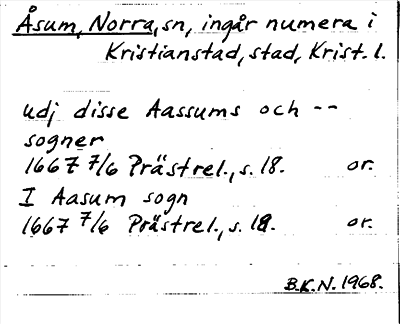 Åsum, Norra, sn, ingår numera i
Kristianstad, stad, Krist. l.
udj disse Aassums och --
sogner
1667 7/6 Prästrel., s. 18. or.
I Aasum sogn
1667 7/6 Prästrel., s. 18. or.
B.K.N. 1968.